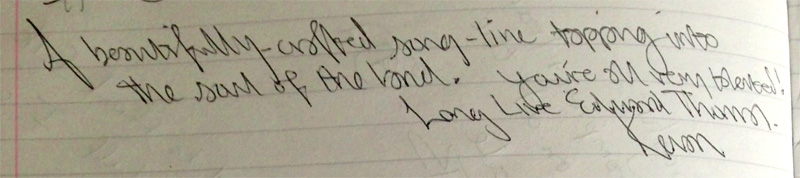 A beautifully-crafted song-line tapping into
the soul of the land. You're all very talented!
Long Live Edward Thomas.